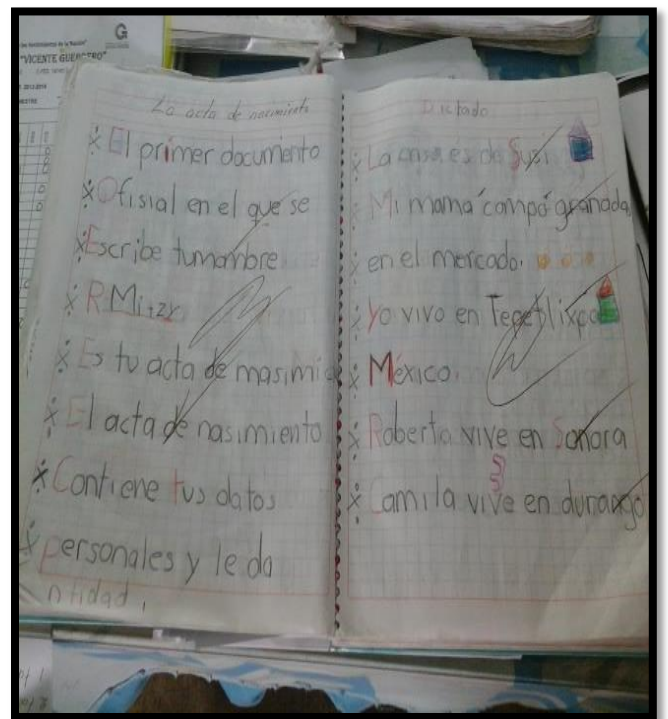 "VICENTE GUERRERO"
La acta de nacimiento
El primer documento
Ofisial en el que se
Escribe tumombre
R Mitzy
Es tu acta de masimie
El acta de nasimiento
Contiene tus datos
personales y le da
ntidad.
Dictado
La casa es de Susi
Mi mama compo granada
en el mercado.
Yo vivo en Tepetlixpa
México.
Roberto vive en Sonora
Camila vive en durango